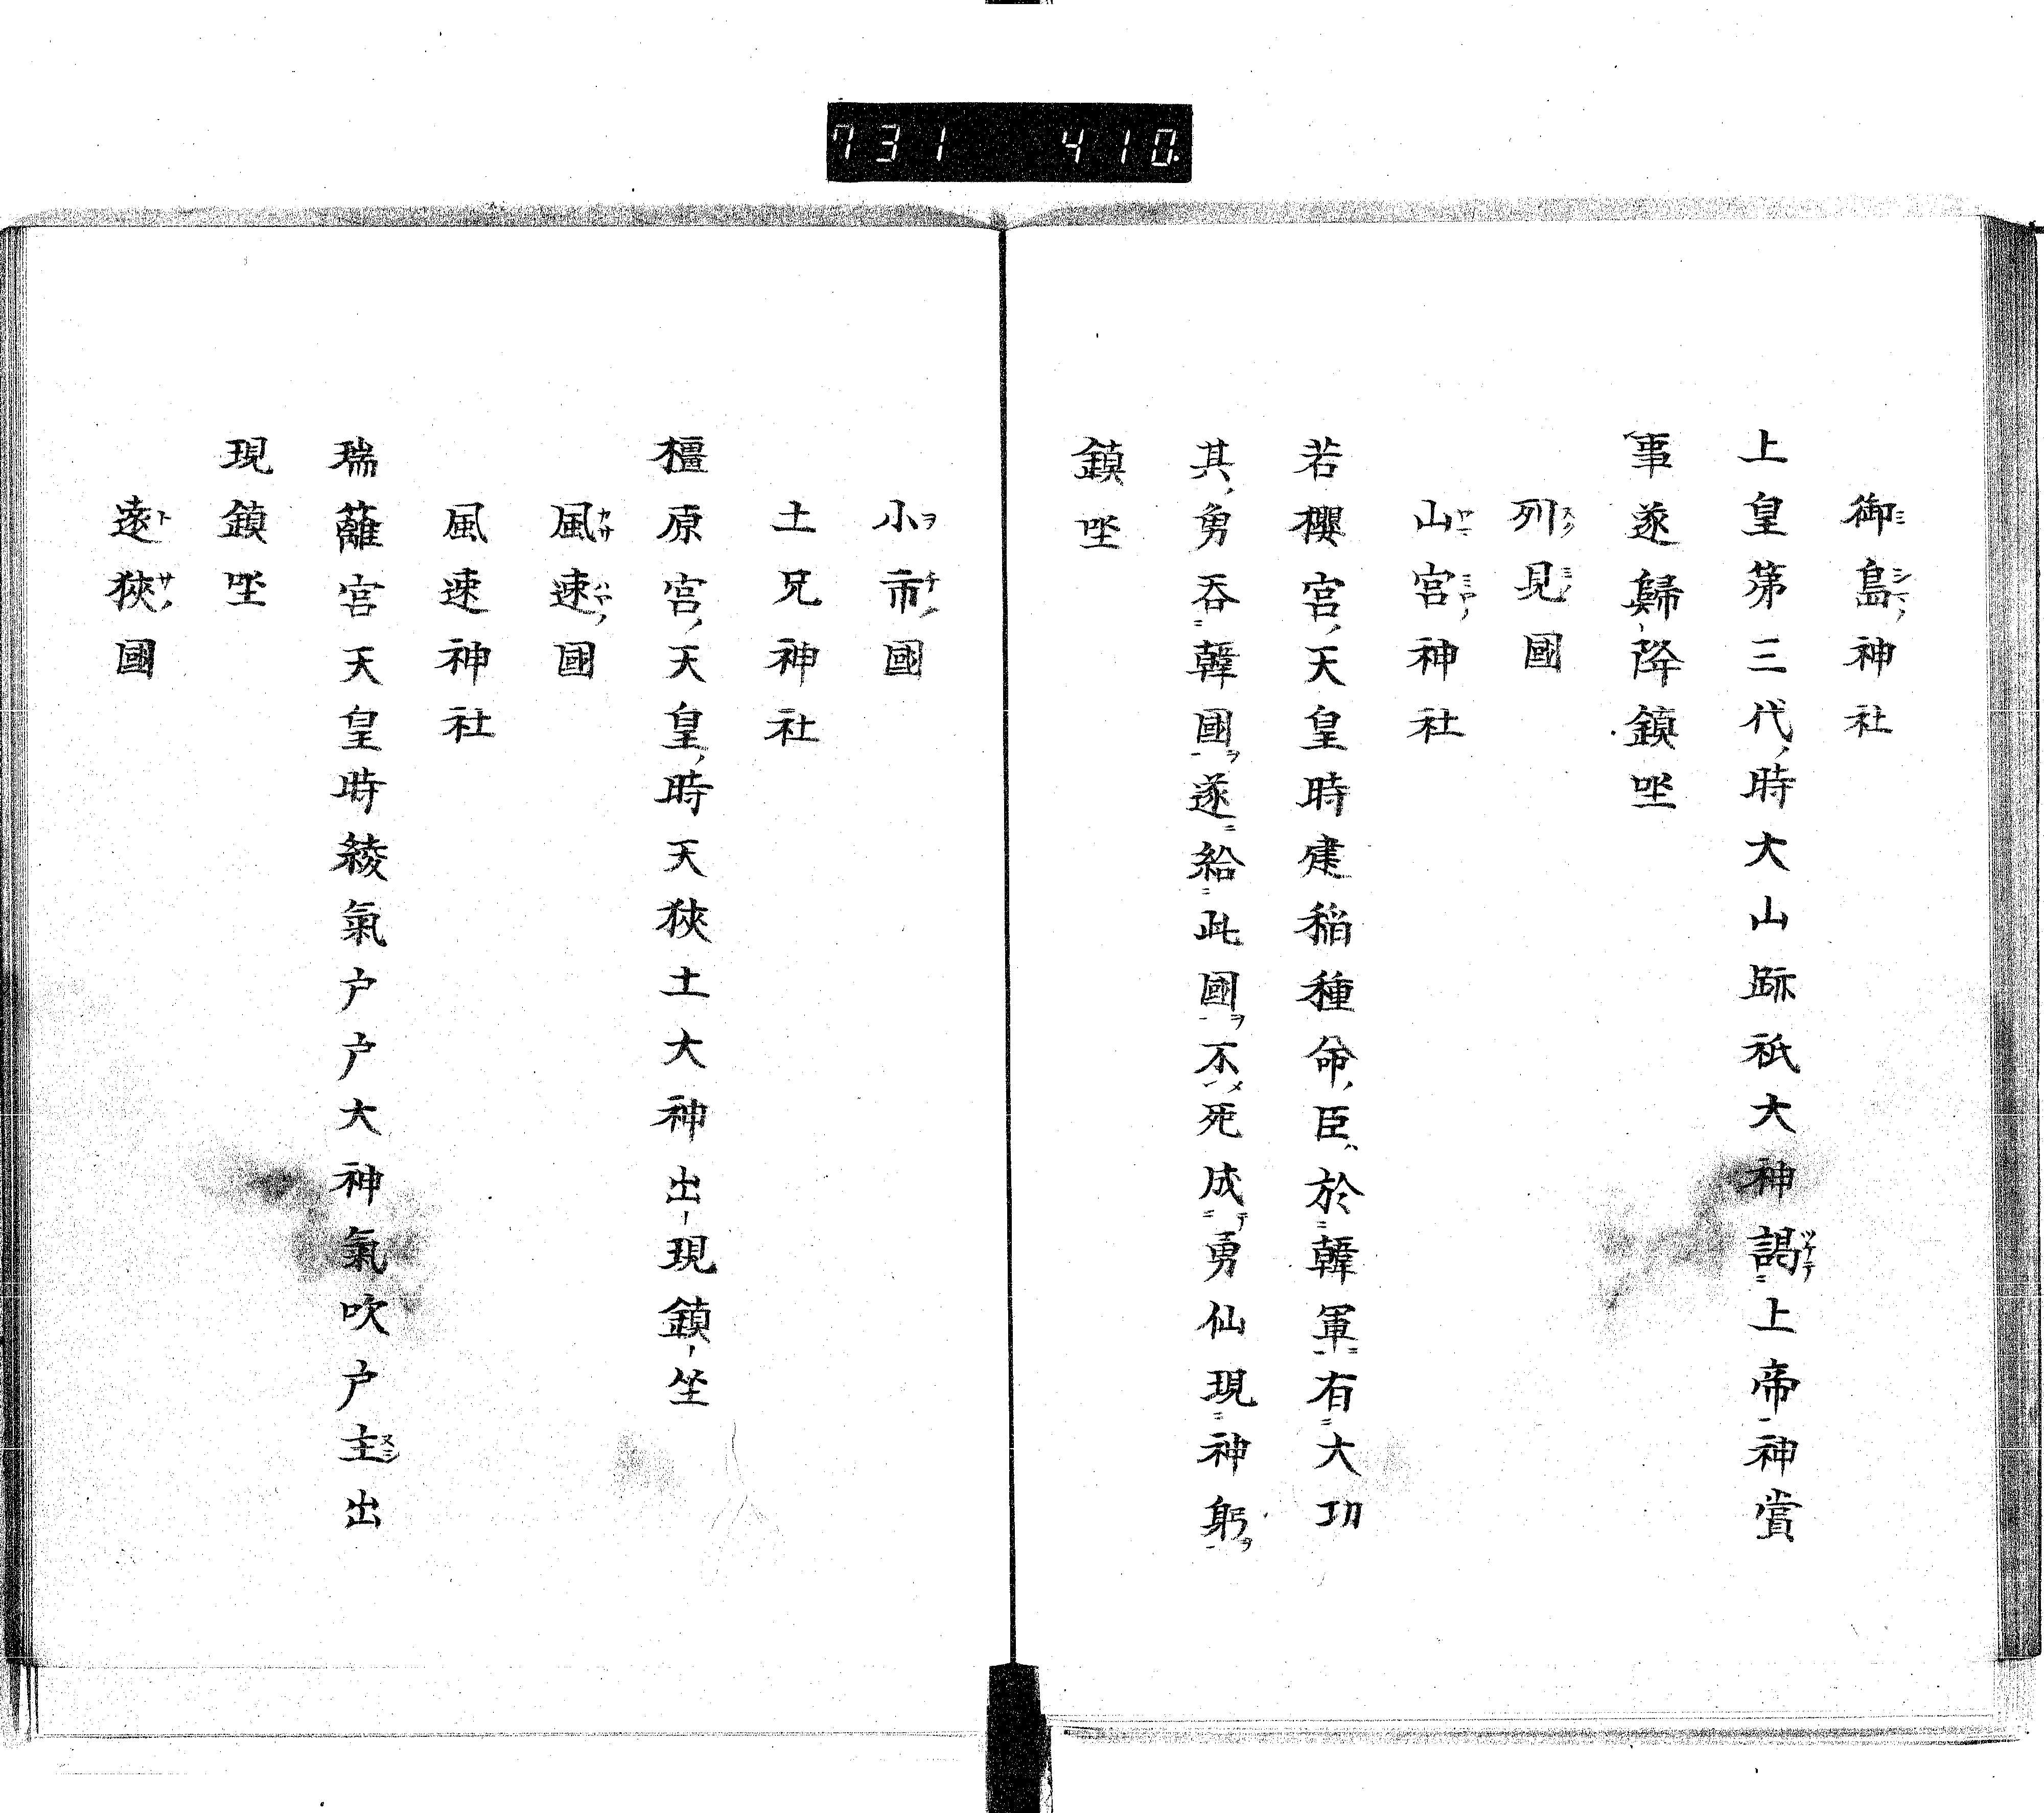 731 410.
御島神社
上皇第三代時大山跡祇大神謁上帝神賞
事遂歸降鎮坐
列見國
山宮神社
若櫻宮天皇時建稲種命臣於韓軍有大功
其勇吞韓國遂給此國不死成勇仙現神躬
鎮坐
小市國
土兄神社
橿原宮天皇時天狹土大神出現鎮坐
風速國
風速神社
瑞籬宮天皇時綾氣戸戸大神氣吹戸主出
現鎮坐
遠狹國